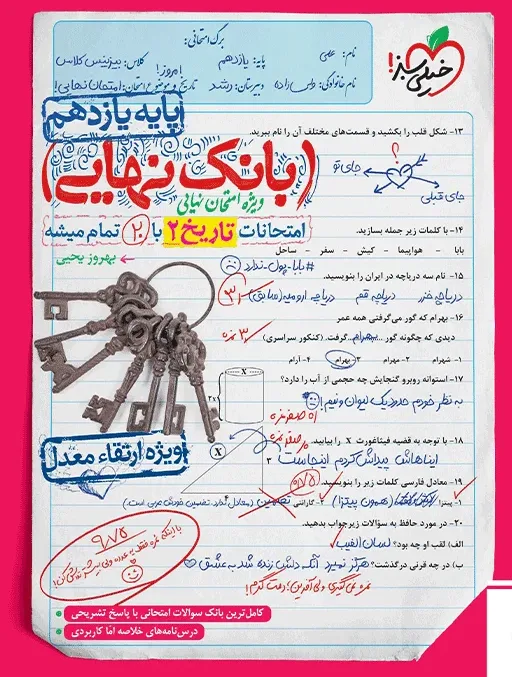 خیلی سبز!
برگ امتحانی:
نام: علی
پایه: یازدهم
کلاس: بیزینس کلاس
نام خانوادگی:
دبیرستان: رشد
تاریخ و موضوع امتحان: امروز! امتحان نهایی!
پایه یازدهم
۱۳- شکل قلب را بکشید و قسمت‌های مختلف آن را نام ببرید.
؟
جای تو
جای قبلی
(بانک نهایی)
ویژه امتحان نهایی
امتحانات تاریخ ۲ با ۲۰ تمام میشه
بهروز یحیی
۱۴- با کلمات زیر جمله بسازید.
بابا - هواپیما - کیش - سفر - ساحل
#بابا-پول-ندارد
۱۵- نام سه دریاچه در ایران را بنویسید.
دریاچه خزر دریاچه قم دریاچه ارومیه (سابق)
۱۶- بهرام که گور می‌گرفتی همه عمر
دیدی که چگونه گور ...بهرام... گرفت. (کنکور سراسری)
۳ نمره
۱- شهرام ۲- مهرام ۳- بهرام ۴- آرام
۱۷- استوانه روبرو گنجایش چه حجمی از آب را دارد؟
به نظر خودم حدود یک لیوان و نیم!
X
۲x
۱۸- با توجه به قضیه فیثاغورث X را بیابید.
ایناهاش پیداش کردم اینجاست
X
۳
۴
۱۹- معادل فارسی کلمات زیر را بنویسید.
۱- پیتزا (همون پیتزا) ۲- گارانتی تضمین
۲۰- در مورد حافظ به سؤالات زیر جواب بدهید.
الف) لقب او چه بود؟ لسان الغیب
ب) در چه قرنی درگذشت؟ هرگز نمیرد آنکه دلش زنده شد به عشق
نمره نمی‌گیری ولی آفرین! دمت گرم!
ویژه ارتقاء معدل
۹/۷۵
کامل‌ترین بانک سوالات امتحانی با پاسخ تشریحی
درس‌نامه‌های خلاصه امّا کاربردی